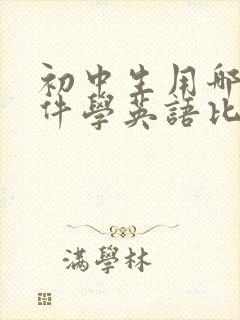 初中生用哪
件學英語比
滿學林